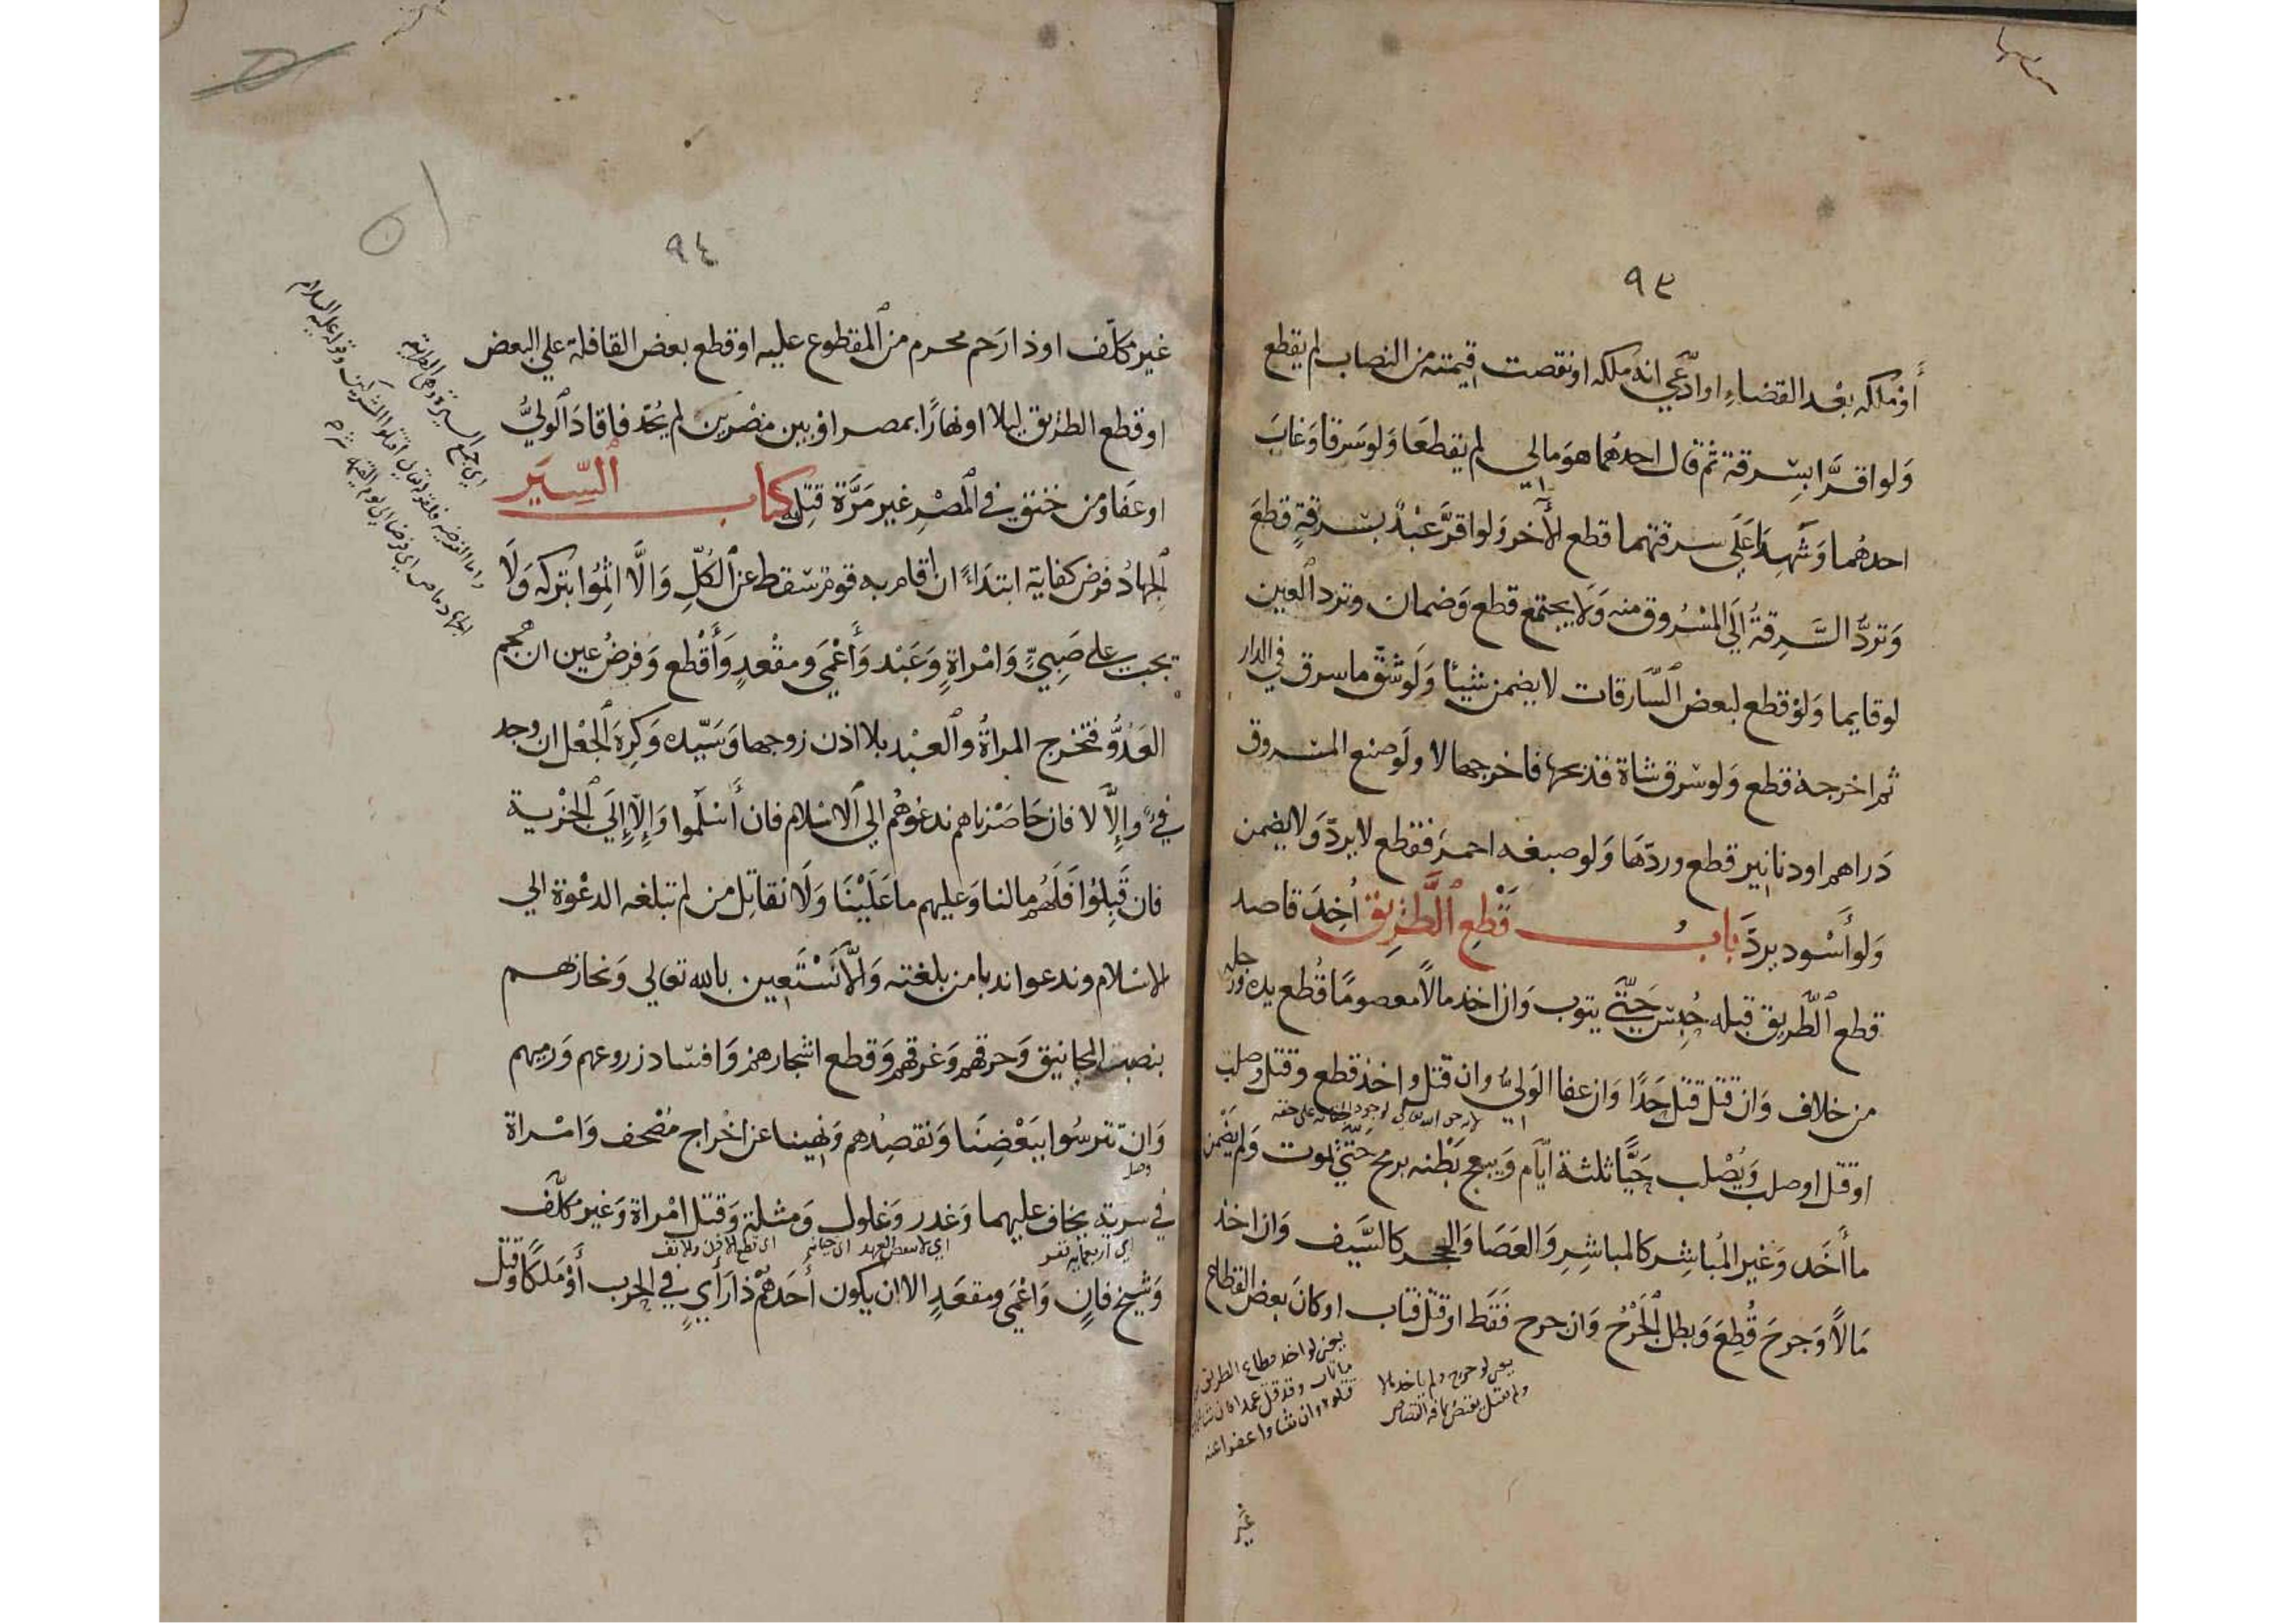 ٩٣
أو ملكه بعد القضاء او ادّعي انه ملكه او نقصت قيمته من النصاب لم يقطع
وَلو اقرَّا بسرقة ثم قال احدهُما هوَ مالي لم يقطعَا وَلو سَرقا وَغابَ
احدهُما وَشهِدَا عَلَي سرقتهما قطع الأخر وَلو اقرَّ عَبْدٌ بسرقةٍ قطعَ
وَتردُّ السَّرقةُ الَي المَسْرُوق منه وَلَا يجتمع قطع وَضمان وتردّ العين
لو قايما وَلَوْ قطع لبعض السَّارقات لا يضمن شيئا وَلَو شَقّ ما سرق في الدار
ثم اخرجهُ قطع وَلو سرق شاة فذبحها فاخرجها لا ولَو صنع المسروق
دَراهم او دنانير قطع وردّهَا وَلو صبغه احمرَ فقطع لا يردّ وَلا يضمن
وَلو أَسْود يردَّ بابُ قَطْعِ الطَّرِيق أُخِذَ قاصد
قطع الطَّريق قبله حُبِسَ حَتَّي يتوب وَان اخذ مالاً معصومًا قُطع يده ورجله
من خلاف وَان قتَل قتِل حَدًا وَان عفا الوَليُّ وان قتل واخذ قطع وقتل وصلب
لانه حق الله تعالي
او قتل او صلب وَيُصْلب حَيًّا ثلثة ايّام وَيبعج بَطْنه برمح حَتّي يموت وَلم يضْمن
ما أَخَد وَغير المُباشِر كالمباشِرِ وَالعَصَا وَالحجر كالسَّيف وَان اخذ
مَالاً وَجرحَ قُطِعَ وَبطل الجَرْحُ وَان جرح فَقَط او قتَل فتاب او كانَ بعض القطاع
يعني لو جرح ولم ياخد مالا
ولم يقتل يقتص مما فيه القصاص
يعني لو اخذ قطاع الطريق
وقد قتل عمدا
قتلوه وان شاوا عفوا عنه
غير
٩٤
غير مكلّف او ذا رَحم محرم من المقطوع عليه او قطع بعض القافلة علي البعض
او قطع الطريق ليلا او نهارًا بمصر اوْ بين مصْرين لم يُحَدّ فاقادَ الوليُّ
او عفَا وَمن خنق في المصْر غير مَرَّة قتِل به كتاب السِّيَر
الجهادُ فرض كفاية ابتدَاءً ان اقام به قوم سَقط عن الكُلّ وَالَّا اثِمُوا بتركه وَلَا
يجب علي صَبيٍّ وَامْراةٍ وَعَبْد وَأَعْمَي وَمقْعدٍ وَأَقْطع وَفرضُ عين ان هجم
العَدُوُّ فتخرج المراةُ والعبْد بلا اذن زوجها وَسَيّده وَكرِهَ الجُعْل ان وجد
فيْ وإلَّا لا فان حَاصَرْناهم ندعُوهُم الي الاسْلام فان أَسْلمُوا وَإلّا إلَي الجزْية
فان قَبِلُوا فَلَهُم ما لنا وَعليهم ما عَلَيْنَا وَلَا نقاتِل من لم تبلغه الدعْوة الي
الاسْلام وندعوا ندبا من بلغته وَالَّا نَسْتَعِين بالله تعالي وَنحاربهم
بنصب المجانيق وَحرقهم وَغرقهم وَقطع اشجارهم وَافساد زروعهم وَرميهم
وَان تترسُوا ببَعْضِنَا وَنقصِدُهم وَنهينا عن اخْراج مصْحف وَامْراة
في سرية يخاف عليهما وَغدر وَغلول وَمثلة وَقتل امْراة وَغير مكلَّف
اي اربعماية نفر
وَشيخٍ فانٍ وَاعْمَي ومقعَدٍ الا ان يكون أَحَدهُمْ ذا رَأيٍ في الحرب أَوْ مَلكًا وقتْل
اي جمع السيرة وهي الطريقة